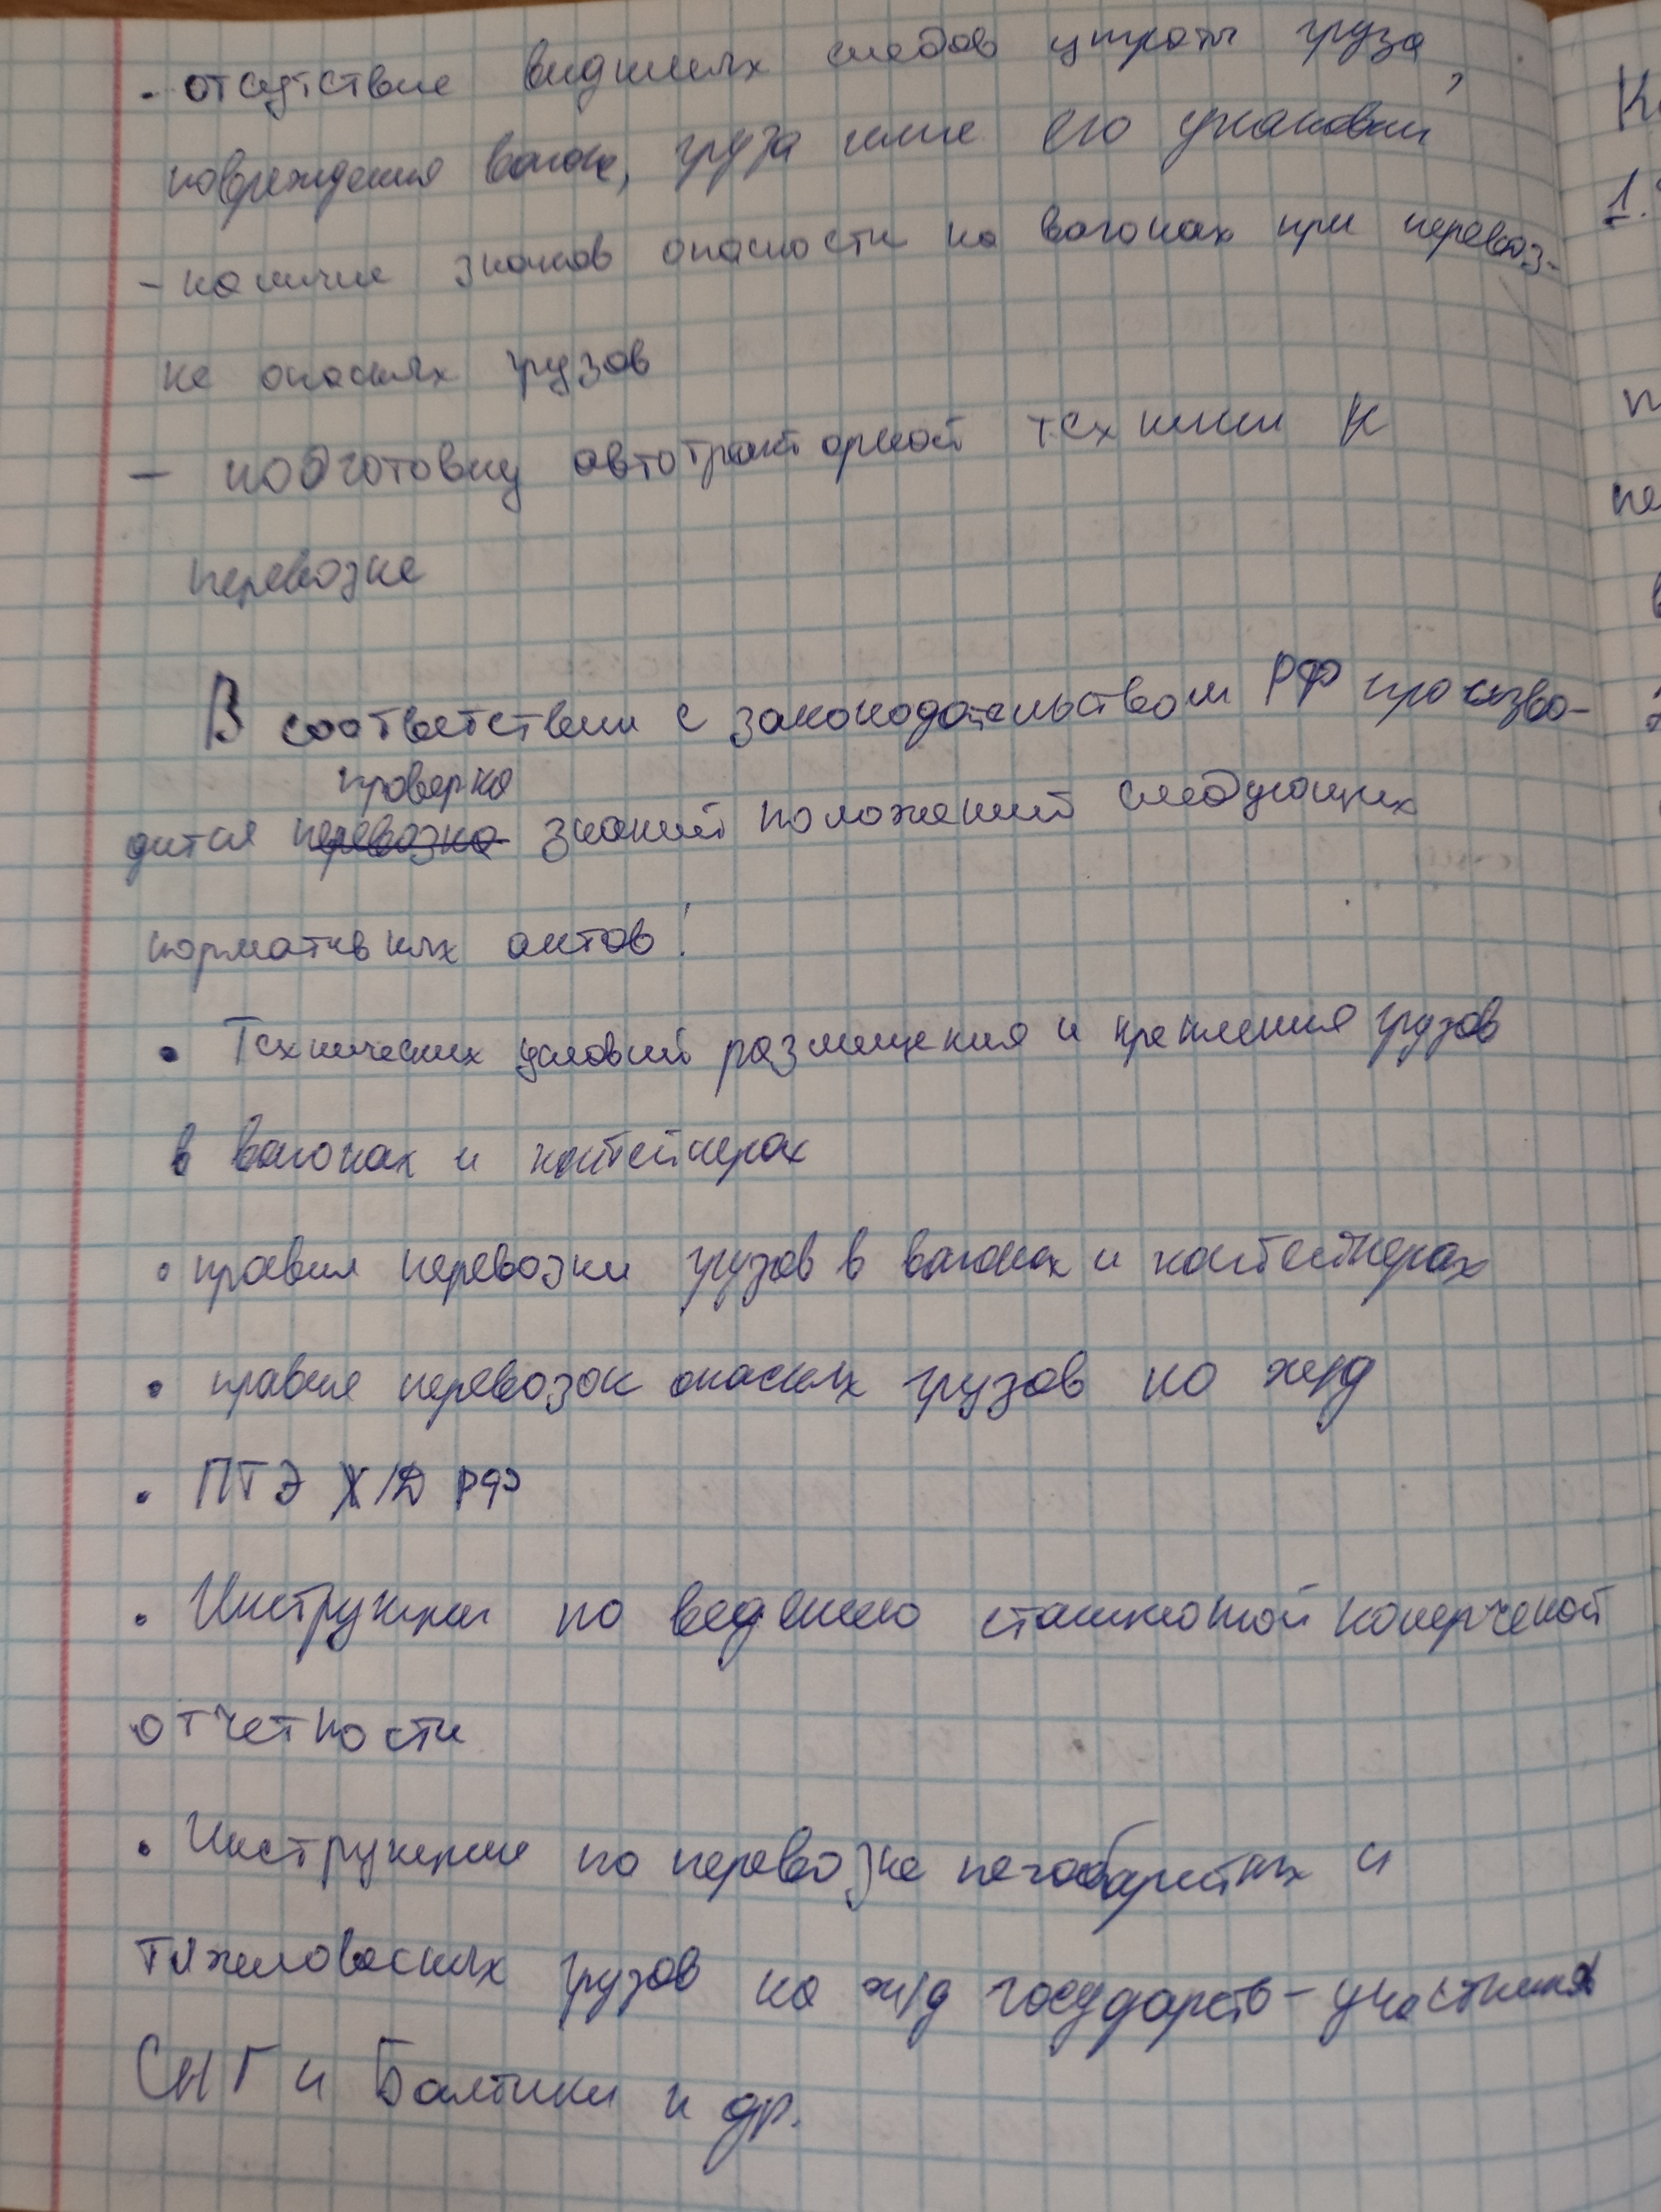 - отсутствие видимых следов утраты груза,
повреждения вагона, груза или его упаковки
- наличие знаков опасности на вагонах при перевоз-
ке опасных грузов
- подготовку автотракторной техники к
перевозке
В соответствии с законодательством РФ произво-
проверка
дится перевозка знаний положений следующих
нормативных актов:
• Технических условий размещения и крепления грузов
в вагонах и контейнерах
• правил перевозки грузов в вагонах и контейнерах
• правил перевозок опасных грузов по ж/д
• ПТЭ Ж/Д РФ
• Инструкции по ведению станционной комерческой
отчетности
• Инструкции по перевозке негабаритных и
тяжеловесных грузов на ж/д государств-участниках
СНГ и Балтики и др.
1.